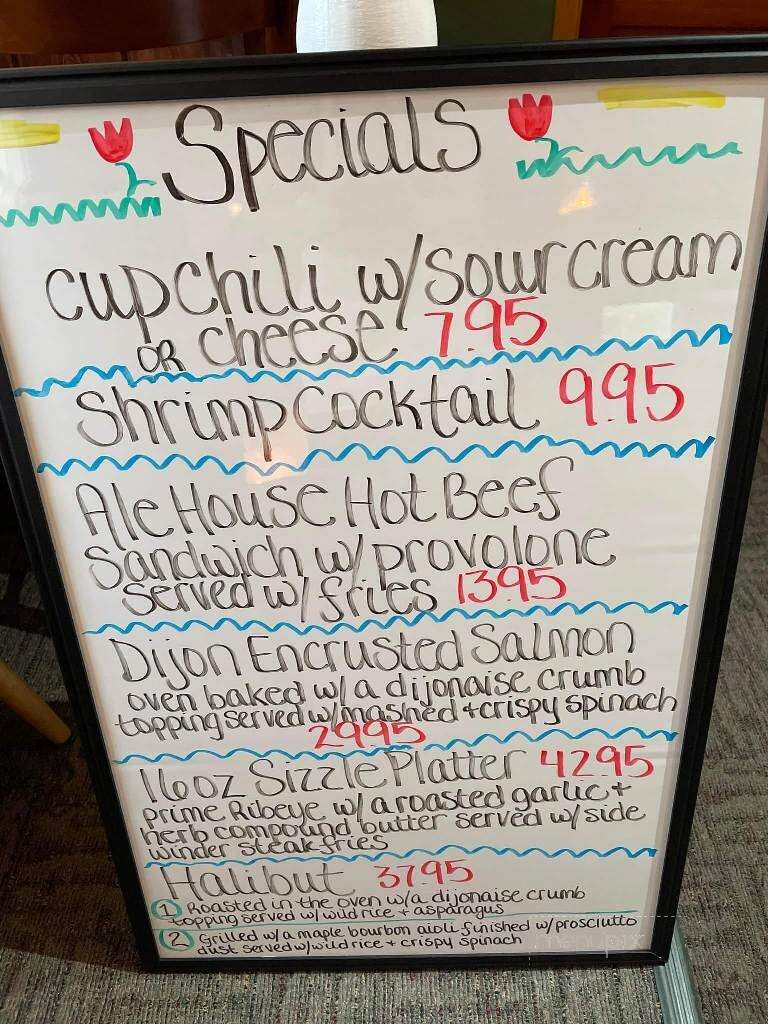 Specials
cup chili w/ sour cream
OR cheese 7.95
Shrimp Cocktail 9.95
Ale House Hot Beef
Sandwich w/ provolone
served w/ fries 13.95
Dijon Encrusted Salmon
oven baked w/ a dijonaise crumb
topping served w/ mashed + crispy spinach
29.95
16oz Sizzle Platter 42.95
prime Ribeye w/ a roasted garlic +
herb compound butter served w/ side
winder steak fries
Halibut 37.95
1 Roasted in the oven w/ a dijonaise crumb
topping served w/ wild rice + asparagus
2 Grilled w/ a maple bourbon aioli finished w/ prosciutto
dust served w/ wild rice + crispy spinach